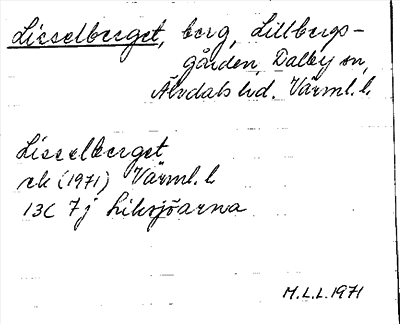 Lisselberget, berg, Lillbergs-
gården, Dalby sn,
Älvdals hd. Värml. l.
Lisselberget
ek (1971) Värml. l.
13C 7j Liksjöarna
M.L.L. 1971